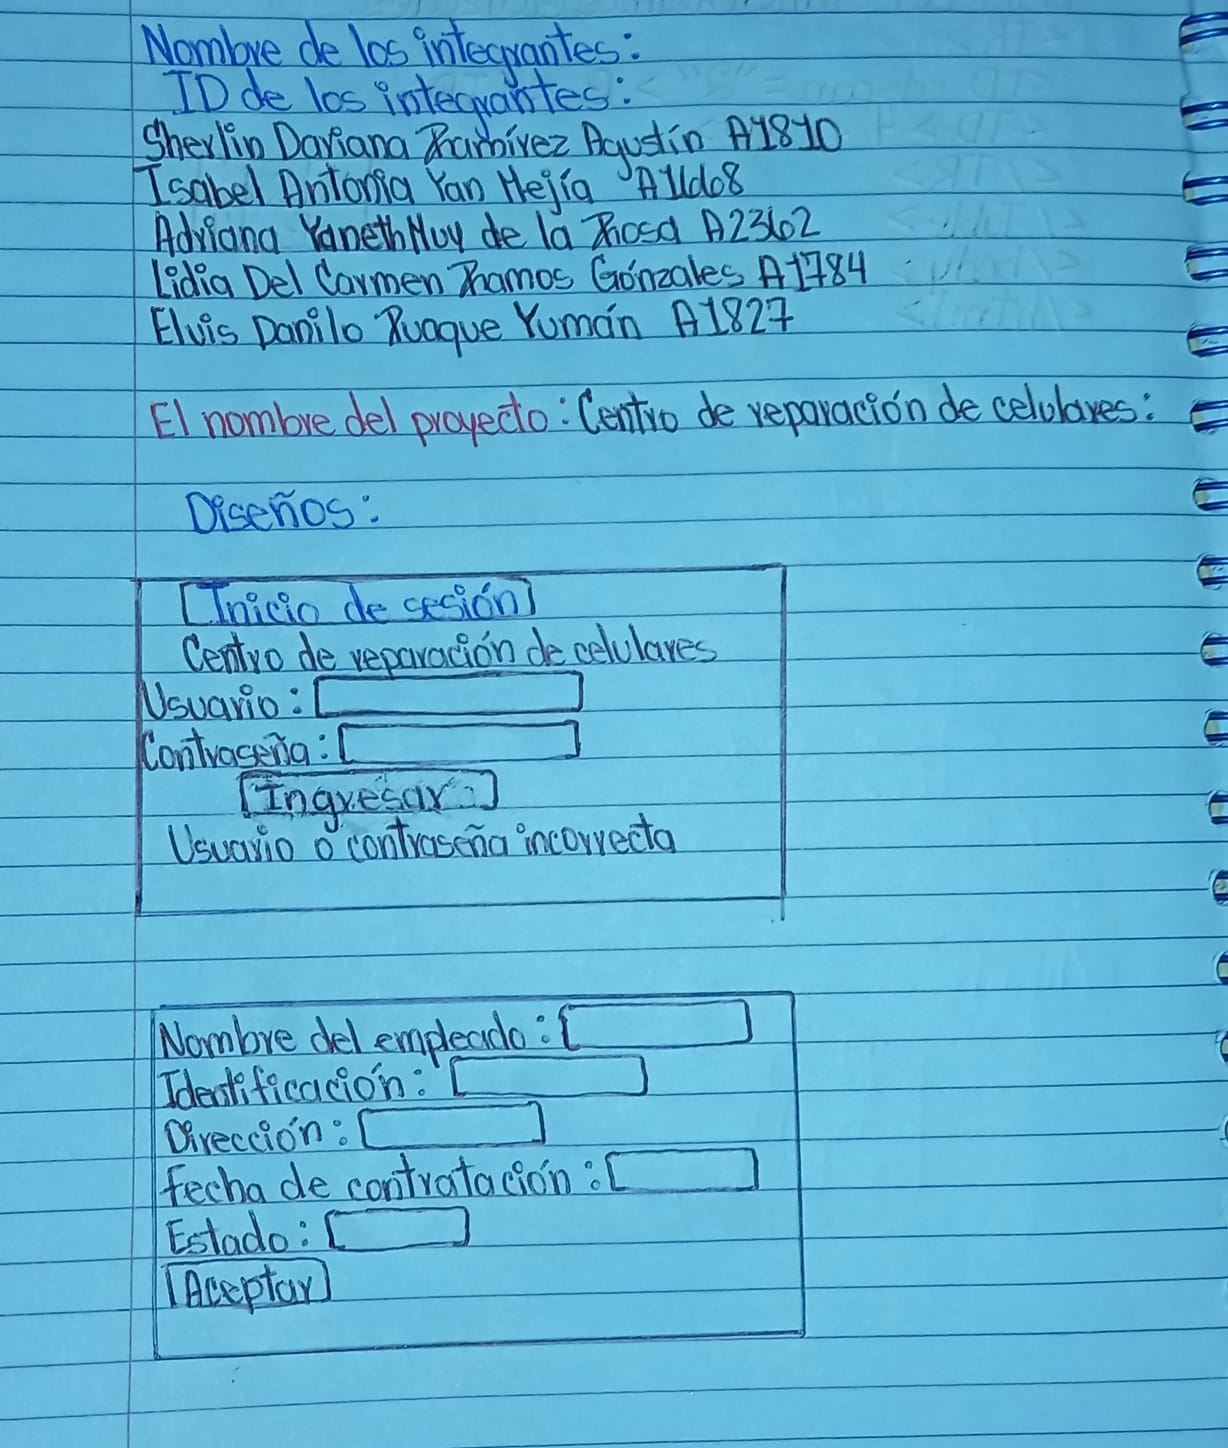 Nombre de los integrantes:
ID de los integrantes:
Sherlin Dariana Ramírez Agustín A1810
Isabel Antonia Yan Mejía
Adriana Yaneth Muy de la Rosa A2362
Lidia Del Carmen Ramos Gónzales A1784
Elvis Danilo Ruaque Yumán A1827
El nombre del proyecto: Centro de reparación de celulares:
Diseños:
Inicio de sesión
Centro de reparación de celulares
Usuario:
Contraseña:
Ingresar
Usuario o contraseña incorrecta
Nombre del empleado:
Identificación:
Dirección:
Fecha de contratación:
Estado:
Aceptar